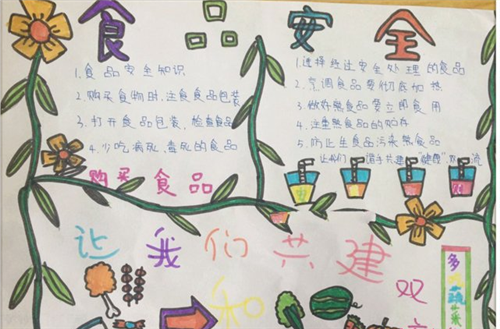 食品安全
1.食品安全知识
2.购买食物时,注食食品包装
3.打开食品包装,检查食品
4.少吃病死,毒死的食品
购买食品
1.选择经过安全处理的食品
2.烹调食品要彻底加热
3.做好熟食品要立即食用
4.注意熟食品的贮存
5.防止生食品污染熟食品
让我们
让我们共建
和
双
多 蔬菜